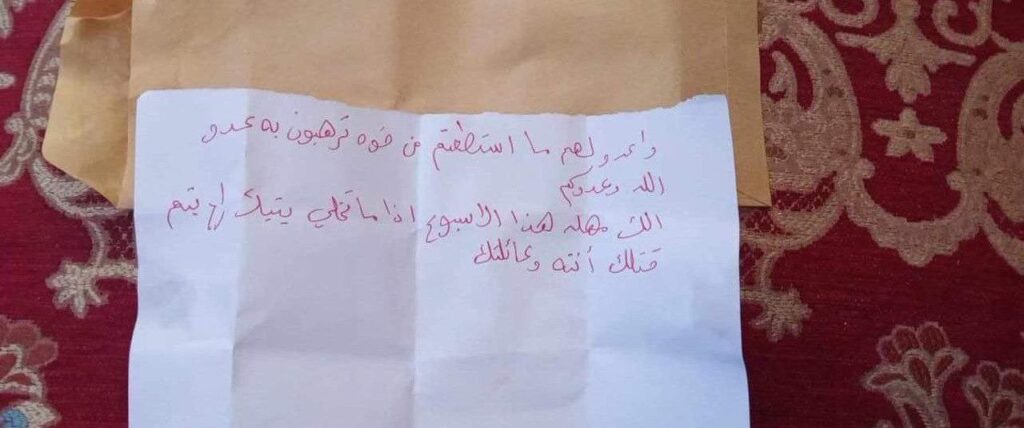 واعدو لهم ما استطعتم من قوه ترهبون به عدو
الله وعدوكم
الك مهله هذا الاسبوع اذا ما تخلي بيتك راح يتم
قتلك أنته وعائلتك